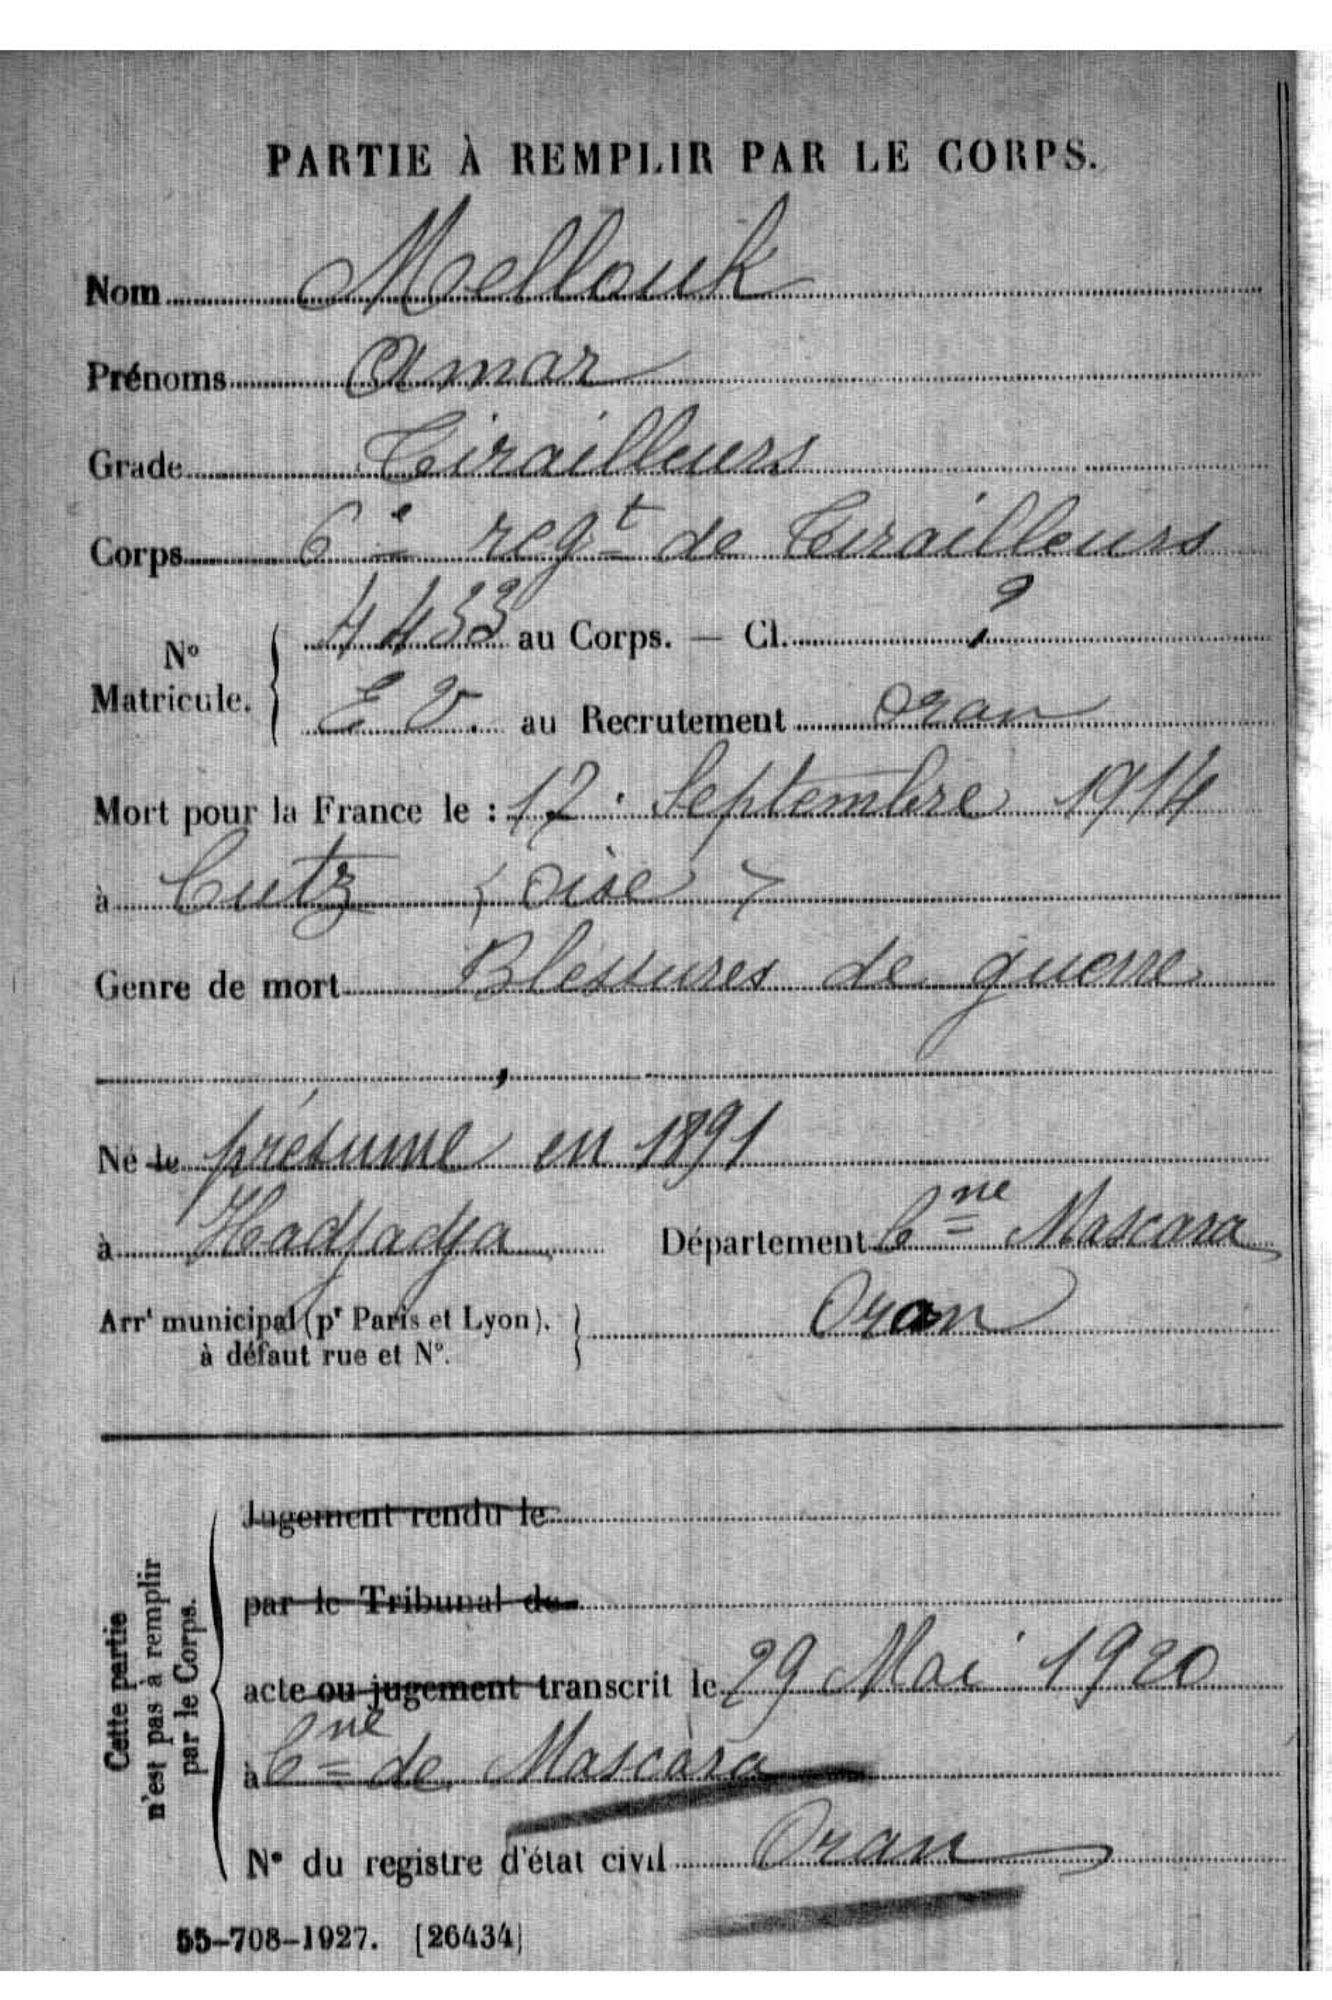 PARTIE À REMPLIR PAR LE CORPS.
Nom Mellouk
Prénoms Amar
Grade Tirailleurs
Corps 6e regt de Tirailleurs
N° Matricule. 4433 au Corps. — Cl. ?
E V. au Recrutement Oran
Mort pour la France le : 17 Septembre 1914
à Cutz (Oise)
Genre de mort Blessures de guerre
Né le présumé en 1891
à Hadjadja Département Cne Mascara
Arrt municipal (pr Paris et Lyon), à défaut rue et N°. Oran
Cette partie n'est pas à remplir par le Corps.
Jugement rendu le
par le Tribunal de
acte ou jugement transcrit le 29 Mai 1920
à Cne de Mascara
N° du registre d'état civil Oran
55-708-1927. [26434]